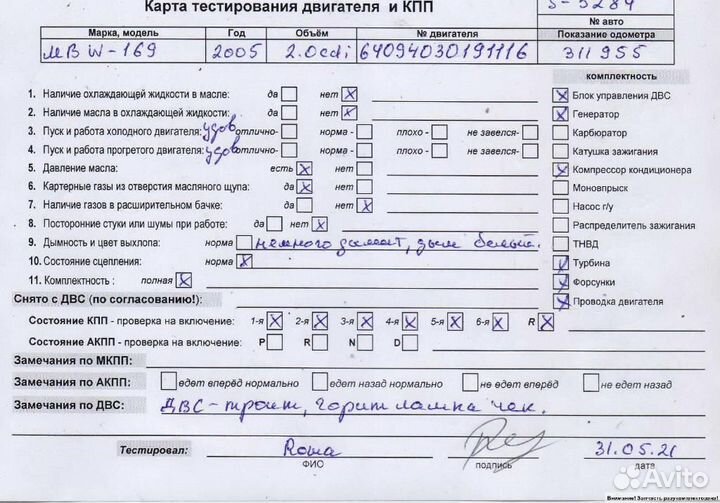 Карта тестирования двигателя и КПП
S-5284
№ авто
Марка, модель Год Объём № двигателя Показание одометра
МВ W-169 2005 2.0cdi 64094030191116 311955
комплектность
1. Наличие охлаждающей жидкости в масле: да нет X
X Блок управления ДВС
2. Наличие масла в охлаждающей жидкости: да нет X
X Генератор
3. Пуск и работа холодного двигателя: удов отлично- норма - плохо - не завелся-
Карбюратор
4. Пуск и работа прогретого двигателя: удов отлично- норма - плохо - не завелся-
Катушка зажигания
5. Давление масла: есть X нет
X Компрессор кондиционера
6. Картерные газы из отверстия масляного щупа: да X нет
Моновпрыск
7. Наличие газов в расширительном бачке: да нет X
Насос г/у
8. Посторонние стуки или шумы при работе: да нет X
Распределитель зажигания
9. Дымность и цвет выхлопа: норма немного дымит, дым белый.
ТНВД
10. Состояние сцепления: норма X
X Турбина
11. Комплектность : полная X
X Форсунки
Снято с ДВС (по согласованию!):
X Проводка двигателя
Состояние КПП - проверка на включение: 1-я X 2-я X 3-я X 4-я X 5-я X 6-я X R X
Состояние АКПП - проверка на включение: P R N D
Замечания по МКПП:
Замечания по АКПП: едет вперёд нормально едет назад нормально не едет вперёд не едет назад
Замечания по ДВС: ДВС-троит, горит лампа чек.
Тестировал: Рома 31.05.21
ФИО подпись дата
Avito
Внимание! Запчасть разукомплектована!